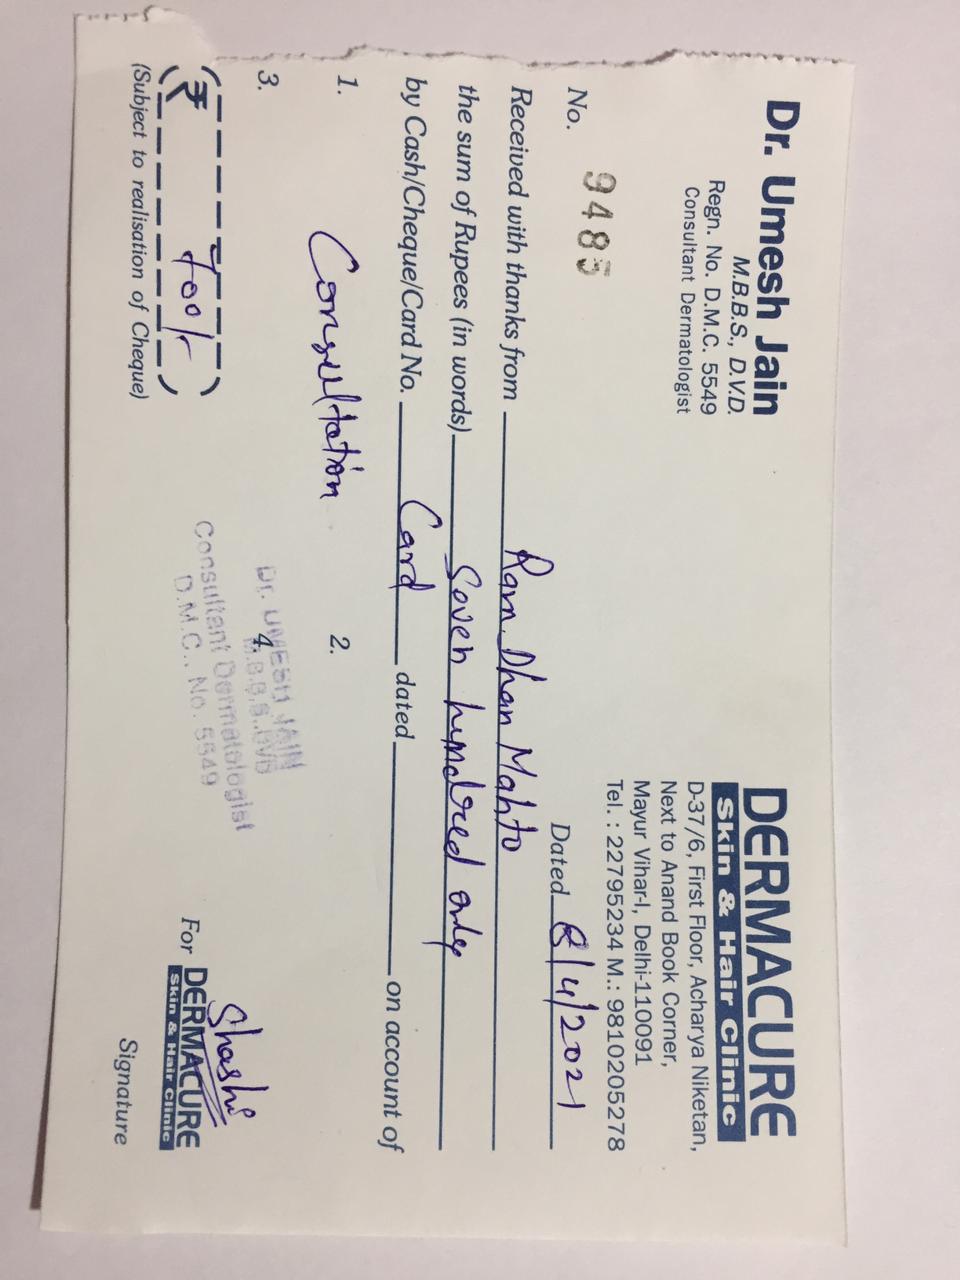 Dr. Umesh Jain
M.B.B.S., D.V.D.
Regn. No. D.M.C. 5549
Consultant Dermatologist
DERMACURE
Skin & Hair Clinic
D-37/6, First Floor, Acharya Niketan,
Next to Anand Book Corner,
Mayur Vihar-I, Delhi-110091
Tel. : 22795234 M.: 9810205278
No. 9485 Dated 8/4/2021
Received with thanks from Ram Dhan Mahto
the sum of Rupees (in words) Seven hundred only
by Cash/Cheque/Card No. Card dated on account of
1. Consultation 2.
3. 4.
Dr. UMESH JAIN
M.B.B.S., DVD
Consultant Dermatologist
D.M.C.. No. 5549
₹ 700/-
(Subject to realisation of Cheque)
Shashi
For DERMACURE
Skin & Hair Clinic
Signature